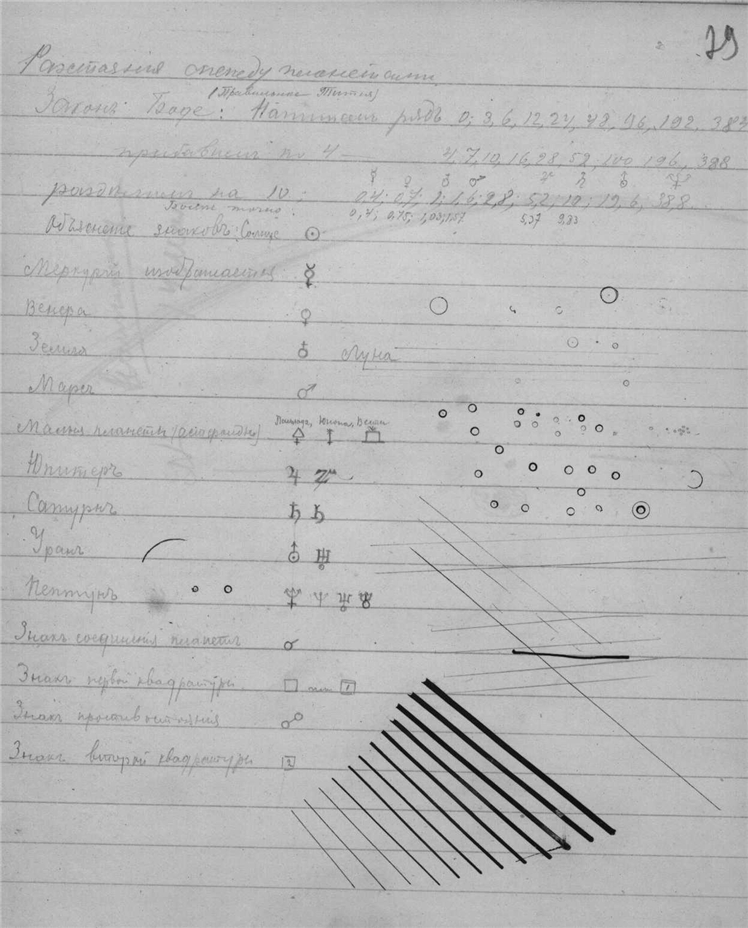 79
Разстоянія между планетами
(Правило Тиція)
Законъ Боде: Напишемъ рядъ 0; 3, 6, 12, 24, 48, 96, 192, 384
прибавимъ по 4 — 4, 7, 10, 16, 28, 52, 100, 196, 388
☿ ♀ ♁ ♂ ♃ ♄ ♅ ♆
раздѣлимъ на 10; 0,4; 0,7; 1; 1,6; 2,8; 5,2; 10; 19,6; 38,8.
Болѣе точно: 0,4; 0,75; 1,03; 1,52 5,37 9,83
Объясненіе знаковъ: Солнце ☉
Меркурій изображается ☿
Венера ♀
Земля ♁ Луна
Марсъ ♂
Паллада, Юнона, Веста
Малыя планеты (астероиды) ⚴ ⚵ ⚶
Юпитеръ ♃
Сатурнъ ♄ ♄
Уранъ ⛢ ♅
Нептунъ ♆
Знакъ соединенія планетъ ☌
Знакъ первой квадратуры □ или 1
Знакъ противостоянія ☍
Знакъ второй квадратуры 2